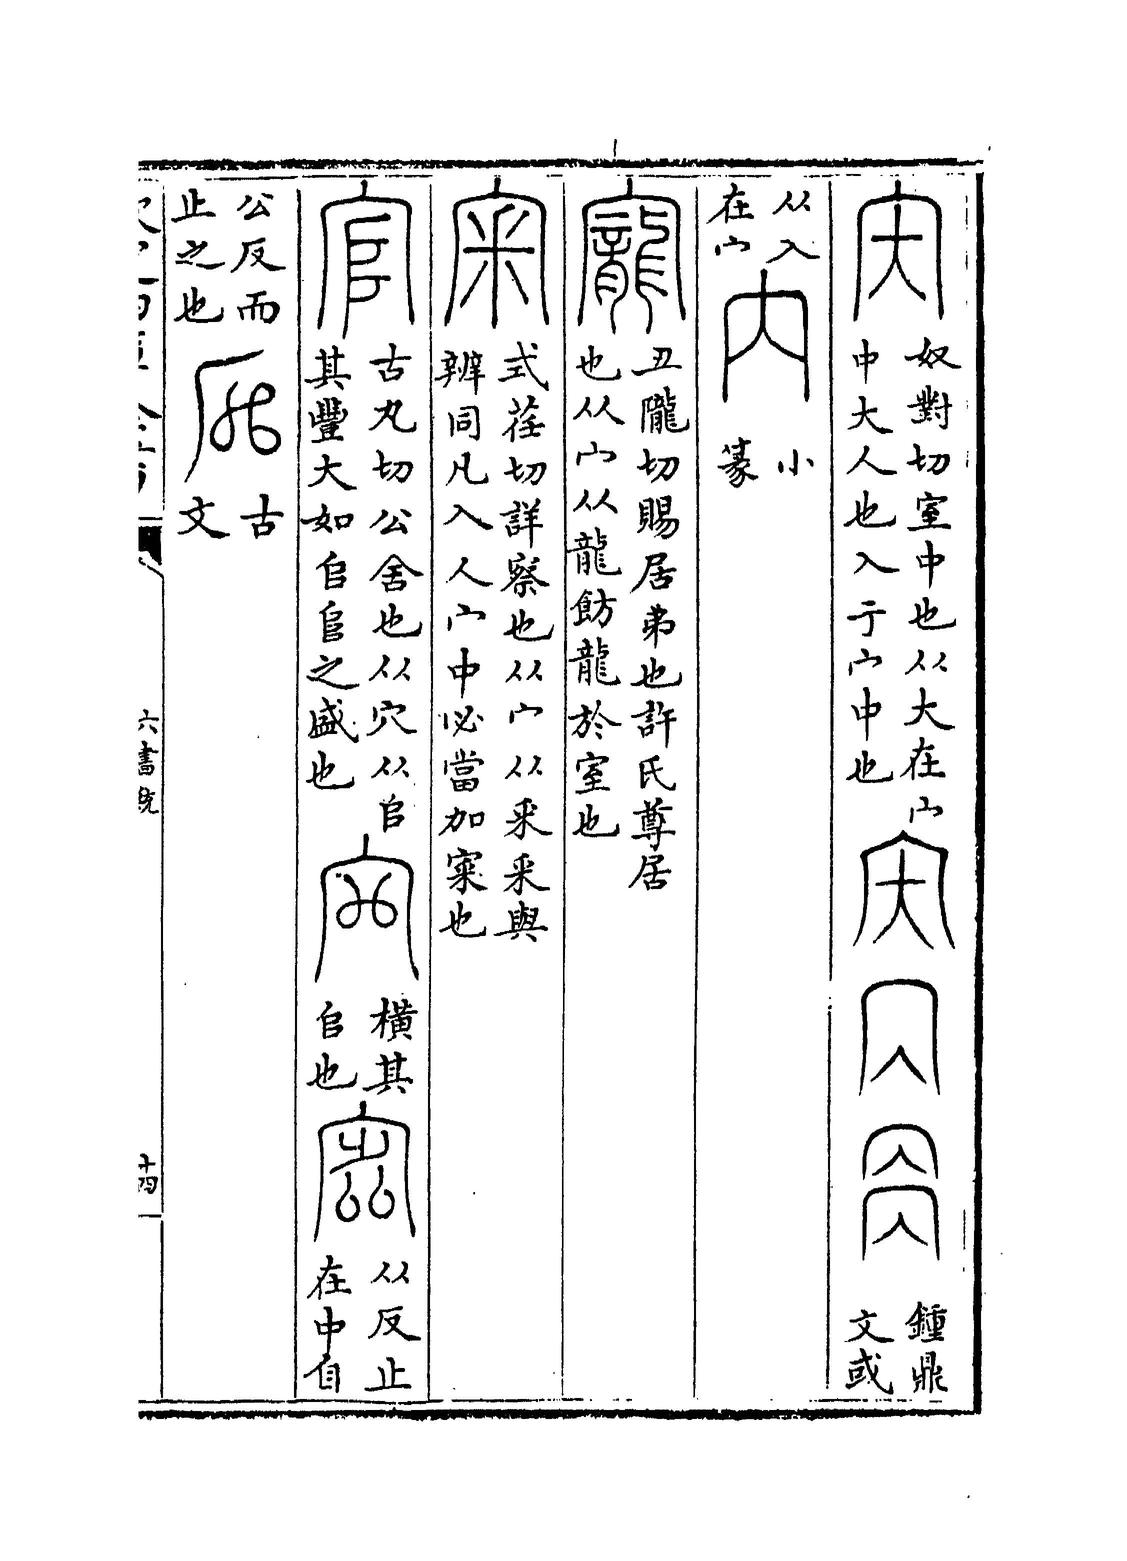 奴對切室中也从大在宀
中大人也入于宀中也
鍾鼎
文或
从入
在宀
內
小
篆
寵
丑隴切賜居弟也許氏尊居
也从宀从龍飭龍於室也
宷
式荏切詳察也从宀从釆釆與
辨同凡入人宀中必當加宷也
官
古丸切公舍也从穴从㠯
其豐大如㠯𠂤之盛也
橫其
㠯也
从反止
在中自
公反而
止之也
古
文
六書統
十四